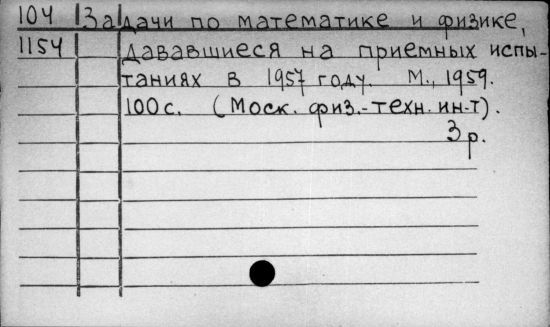 104 Задачи по математике и физике,
1154 дававшиеся на приемных испы-
таниях в 1957 году. М., 1959.
100 с. (Моск. физ.-техн. ин-т).
3 р.